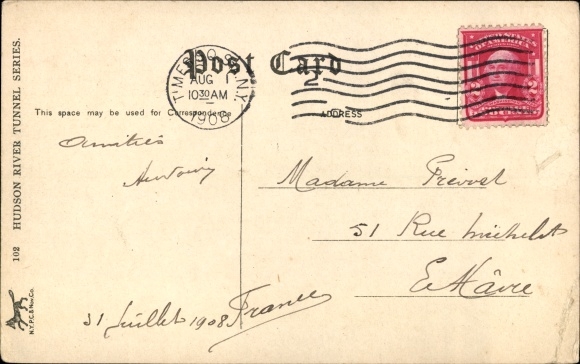 Post Card
TIMES SQ. STA. N.Y.
AUG 1
10 30 AM
1908
2
This space may be used for Correspondence
ADDRESS
Amitiés
Madame Prévost
51 Rue Michelet
Le Hâvre
France
31 Juillet 1908
102 HUDSON RIVER TUNNEL SERIES.
N.Y.P.C. & Nov. Co.